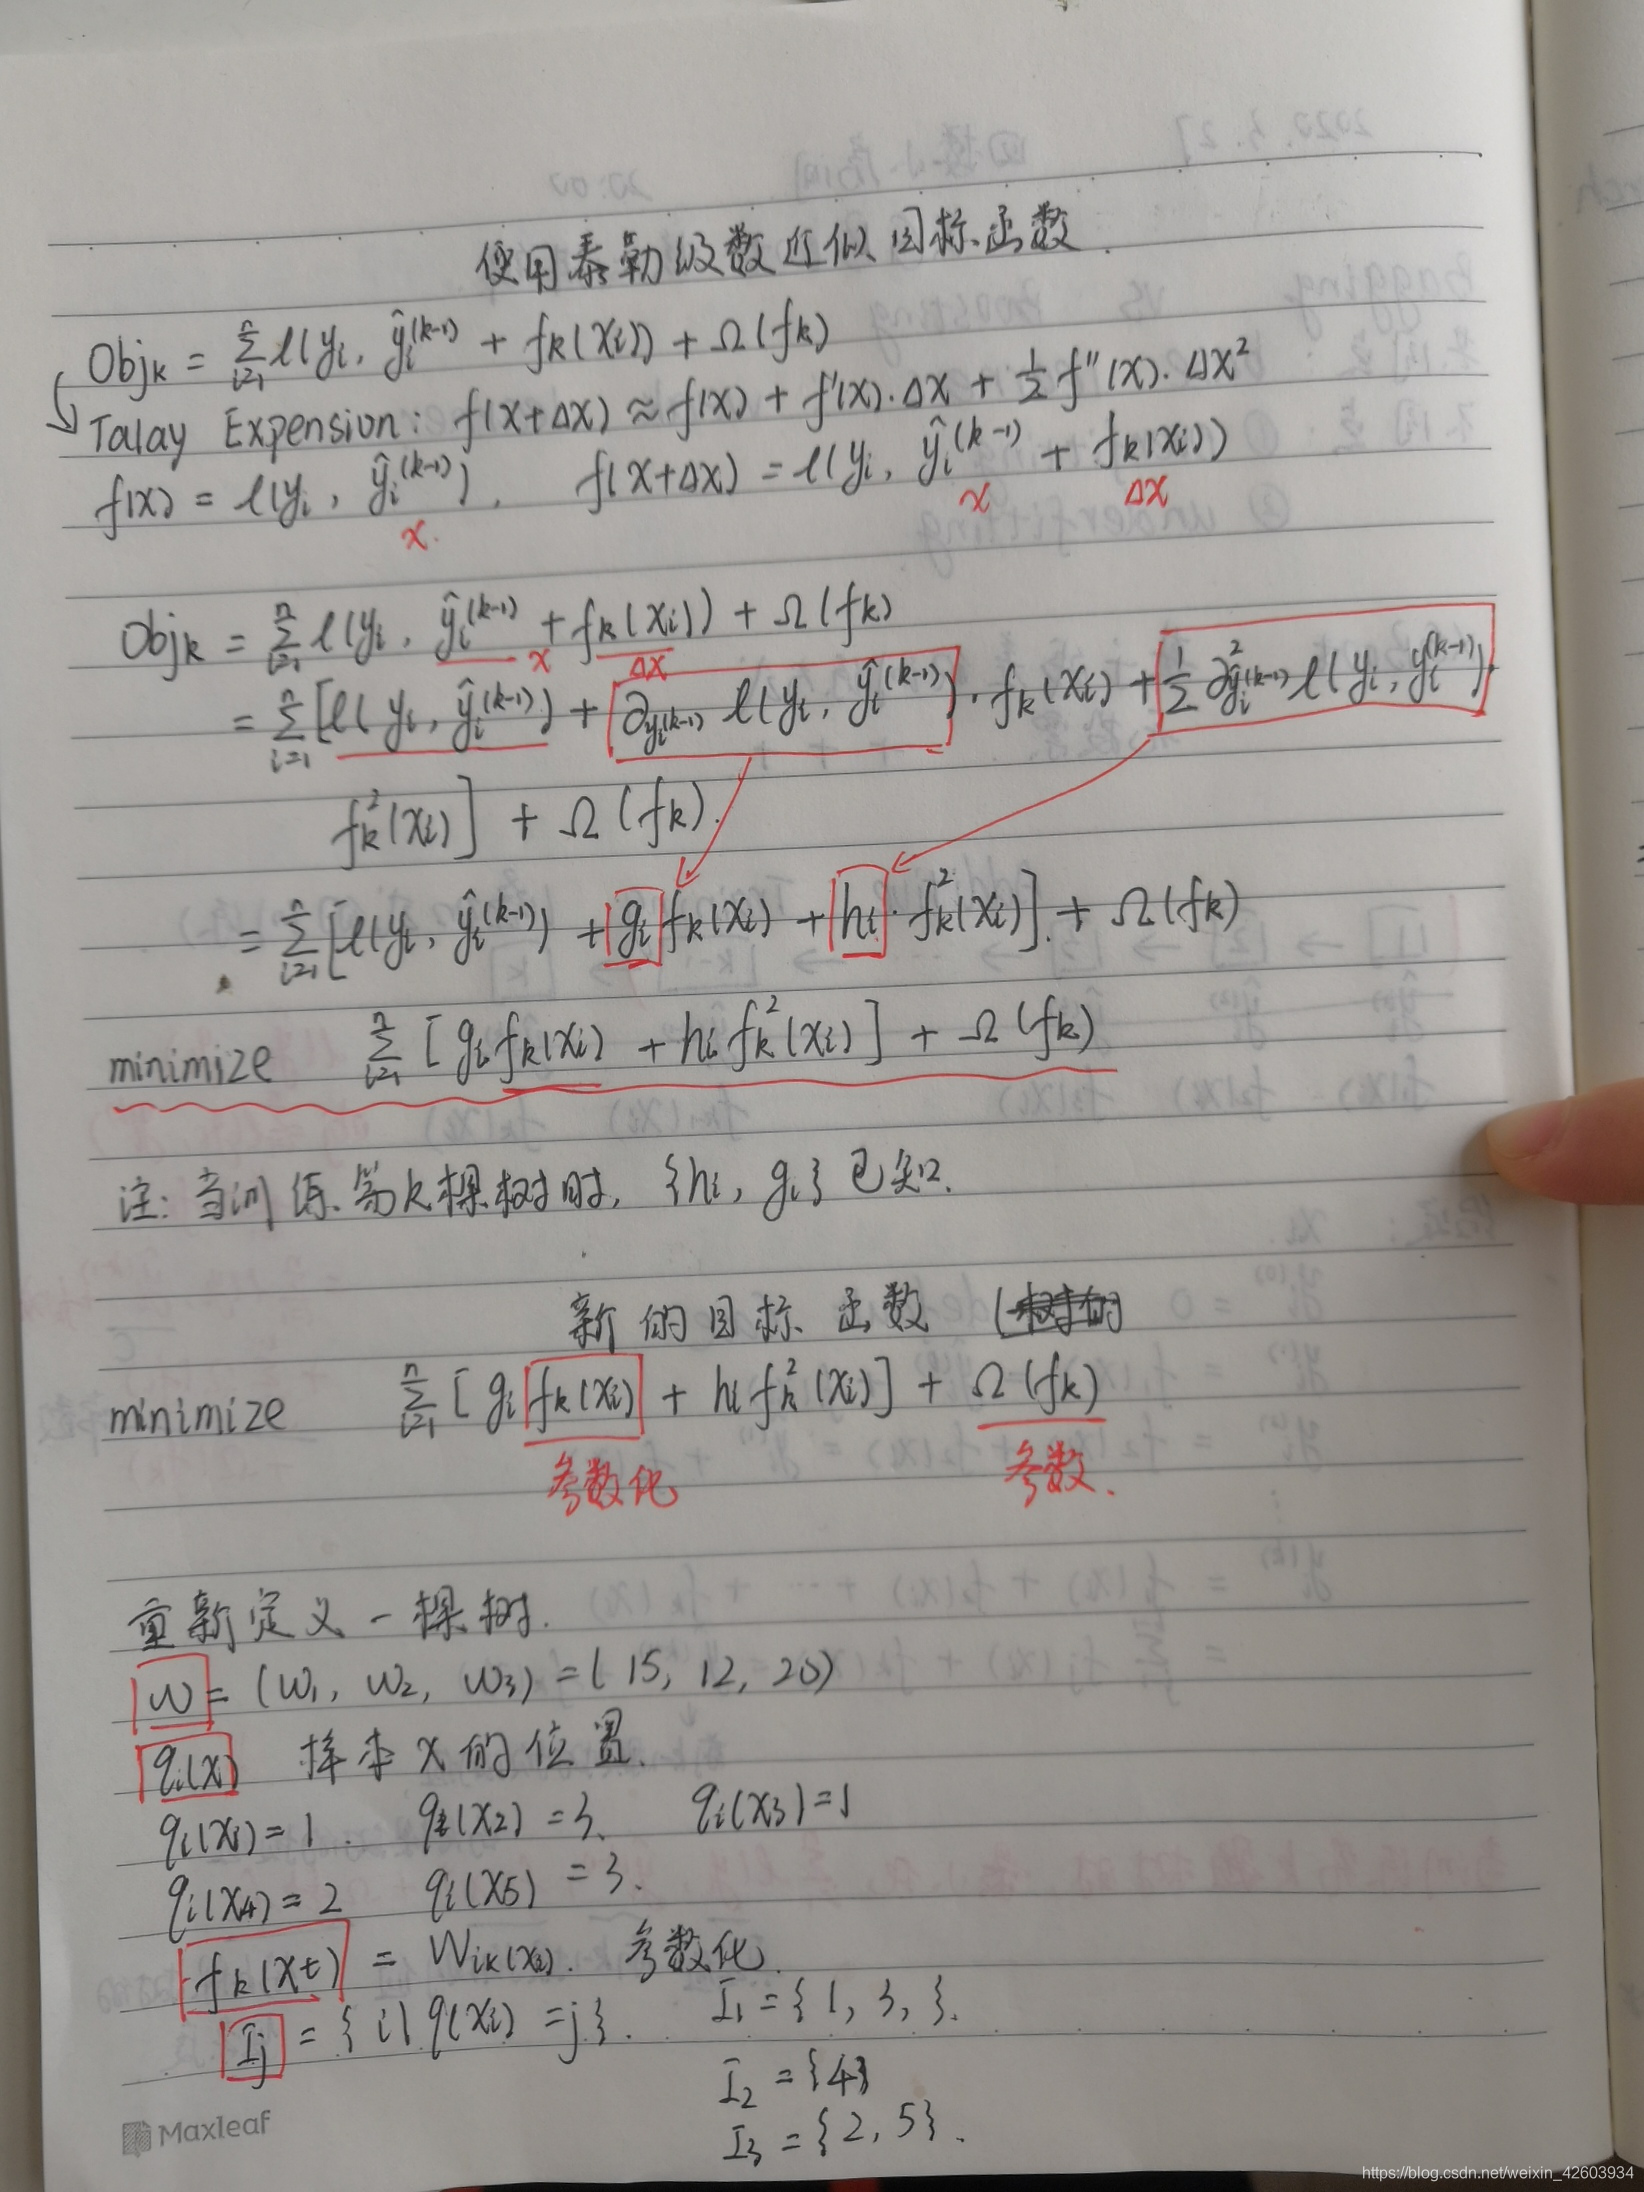 使用泰勒级数近似目标函数.
Objk = Σ_{i=1}^{n} l(yi, ŷi^(k-1) + fk(xi)) + Ω(fk)
Talay Expension: f(x+Δx) ≈ f(x) + f'(x)·Δx + 1/2 f''(x)·Δx²
f(x) = l(yi, ŷi^(k-1)), f(x+Δx) = l(yi, ŷi^(k-1) + fk(xi))
x. x Δx
Objk = Σ_{i=1}^{n} l(yi, ŷi^(k-1) + fk(xi)) + Ω(fk)
x Δx
= Σ_{i=1}^{n} [l(yi, ŷi^(k-1)) + ∂yi^(k-1) l(yi, ŷi^(k-1))·fk(xi) + 1/2 ∂²ŷi^(k-1) l(yi, yi^(k-1))·
fk²(xi)] + Ω(fk).
= Σ_{i=1}^{n} [l(yi, ŷi^(k-1)) + gi fk(xi) + hi·fk²(xi)] + Ω(fk)
minimize Σ_{i=1}^{n} [gi fk(xi) + hi fk²(xi)] + Ω(fk)
注: 当训练第k棵树时, {hi, gi} 已知.
新的目标函数
minimize Σ_{i=1}^{n} [gi fk(xi) + hi fk²(xi)] + Ω(fk)
参数化 参数.
重新定义一棵树.
w = (w1, w2, w3) = (15, 12, 20)
qi(x) 样本x的位置.
qi(xi) = 1. qi(x2) = 3. qi(x3) = 1
qi(x4) = 2 qi(x5) = 3.
fk(xt) = Wik(xi). 参数化.
Ij = {i| q(xi) = j}. I1 = {1, 3, }.
I2 = {4}
I3 = {2, 5}.
Maxleaf
https://blog.csdn.net/weixin_42603934